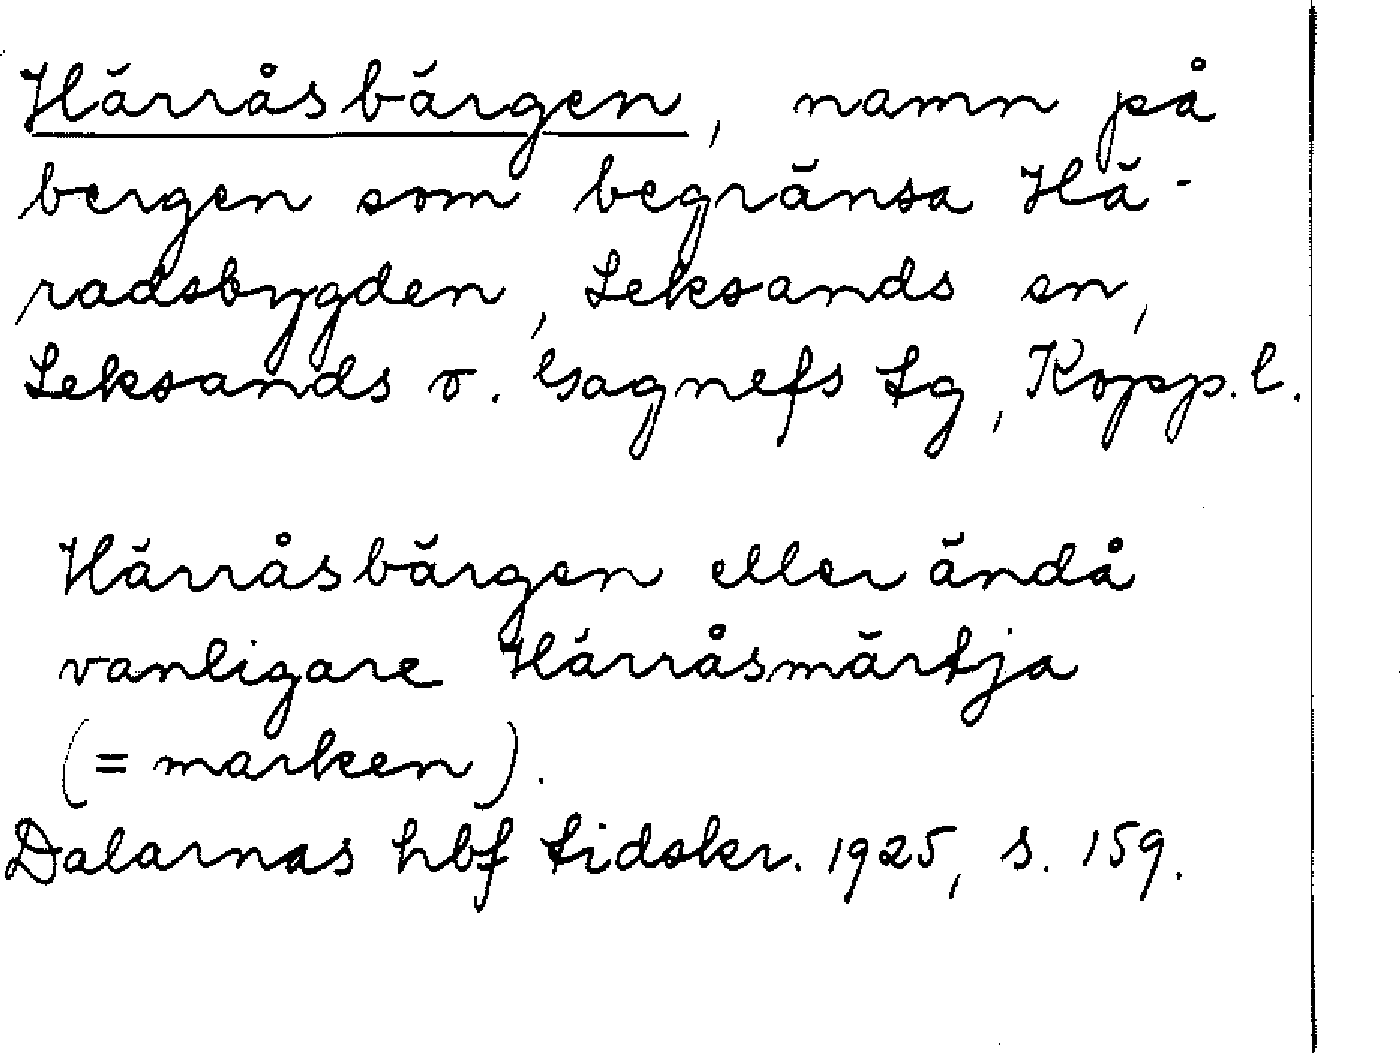 Härråsbärgen, namn på
bergen som begränsa Hä-
radsbygden, Leksands sn,
Leksands o. Gagnefs tg, Kopp. l.
Härråsbärgen eller ändå
vanligare Härråsmärtja
(= marken).
Dalarnas hbf tidskr. 1925, s. 159.